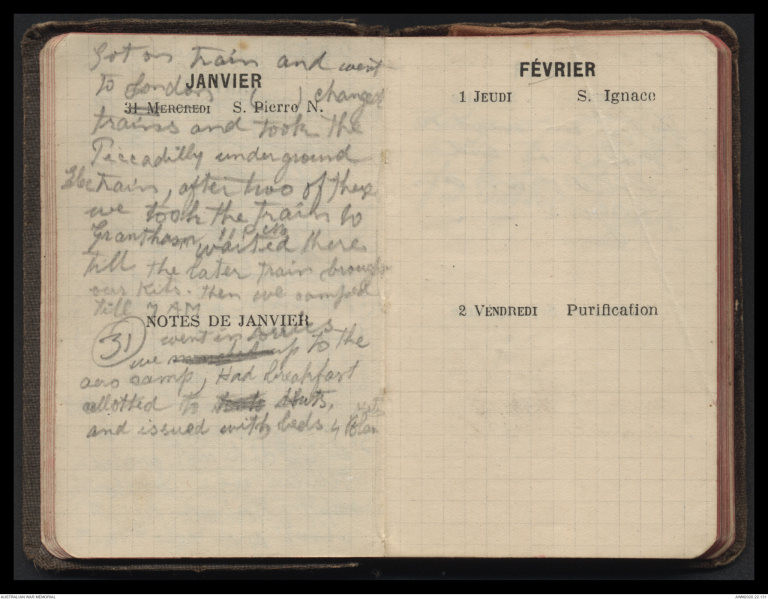 Got on train and went
to London ( ) changed
JANVIER
31 MERCREDI S. Pierre N.
trains and took the
Piccadilly underground
Elec trains, after two of these
we took the train to
Grantham, waited there
till the later train brought
our kits. Then we camped
till 7 AM
NOTES DE JANVIER
31 went in lorries
we up to the
aero camp, Had breakfast
allotted to Huts,
and issued with beds &
FÉVRIER
1 JEUDI S. Ignace
2 VENDREDI Purification
AUSTRALIAN WAR MEMORIAL